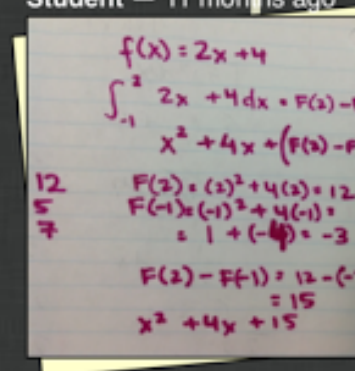 Student — 11 months ago
f(x) = 2x + 4
∫₋₁² 2x + 4 dx = F(2) -
x² + 4x + (F(2) - F
12
5
7
F(2) = (2)² + 4(2) = 12
F(-1) = (-1)² + 4(-1) =
= 1 + (-4) = -3
F(2) - F(-1) = 12 - (-
= 15
x² + 4x + 15